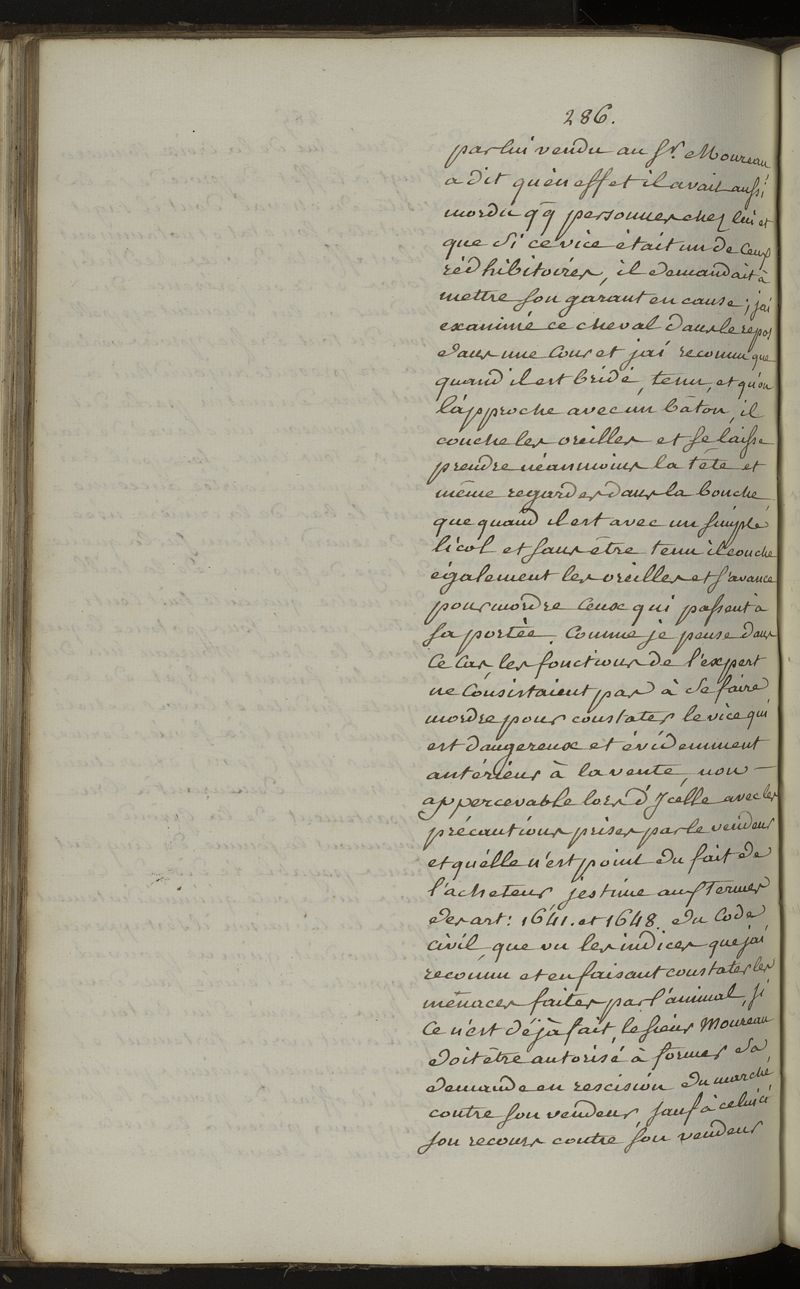 286.
par lui vendu au Sr. Moureau
a dit qu'en effet il avait aussi
mordu qq personnes chez lui et
que Si ce vice était un de Ceux
rédhibitoires, il demandait à
mettre son garant en cause; j'ai
examiné ce cheval dans le repos
dans une Cour et jai reconnu que
quand il est bridé, tenu, et qu'on
l'approche avec un bâton, il
couche les oreilles et se laisse
prendre néanmoins la tête et
même regarder dans la bouche
que quand il est avec un simple
licol et sans être tenu il couche
également les oreilles et s'avance
pour mordre Ceux qui passent à
sa portée. Comme je pense dans
Ce Cas, les fonctions de l'expert
ne Consistaient pas à Se faire
mordre pour constater le vice qui
est dangereux et évidemment
antérieur à la vente, non-
appercevable lors d'Icelle avec les
précautions prises par le vendeur
et qu'elle n'est point du fait de
l'acheteur, j'estime aux Termes
des art: 1641. et 1648. du Code
civil que vu les indices que jai
reconnu et en faisant constater les
ménaces faites par l'animal, si
Ce n'est déjà fait, le sieur Moureau
doit être autorisé à former Sa
demande en rescision du marché
contre son vendeur, sauf à celui ci
son recours contre son vendeur